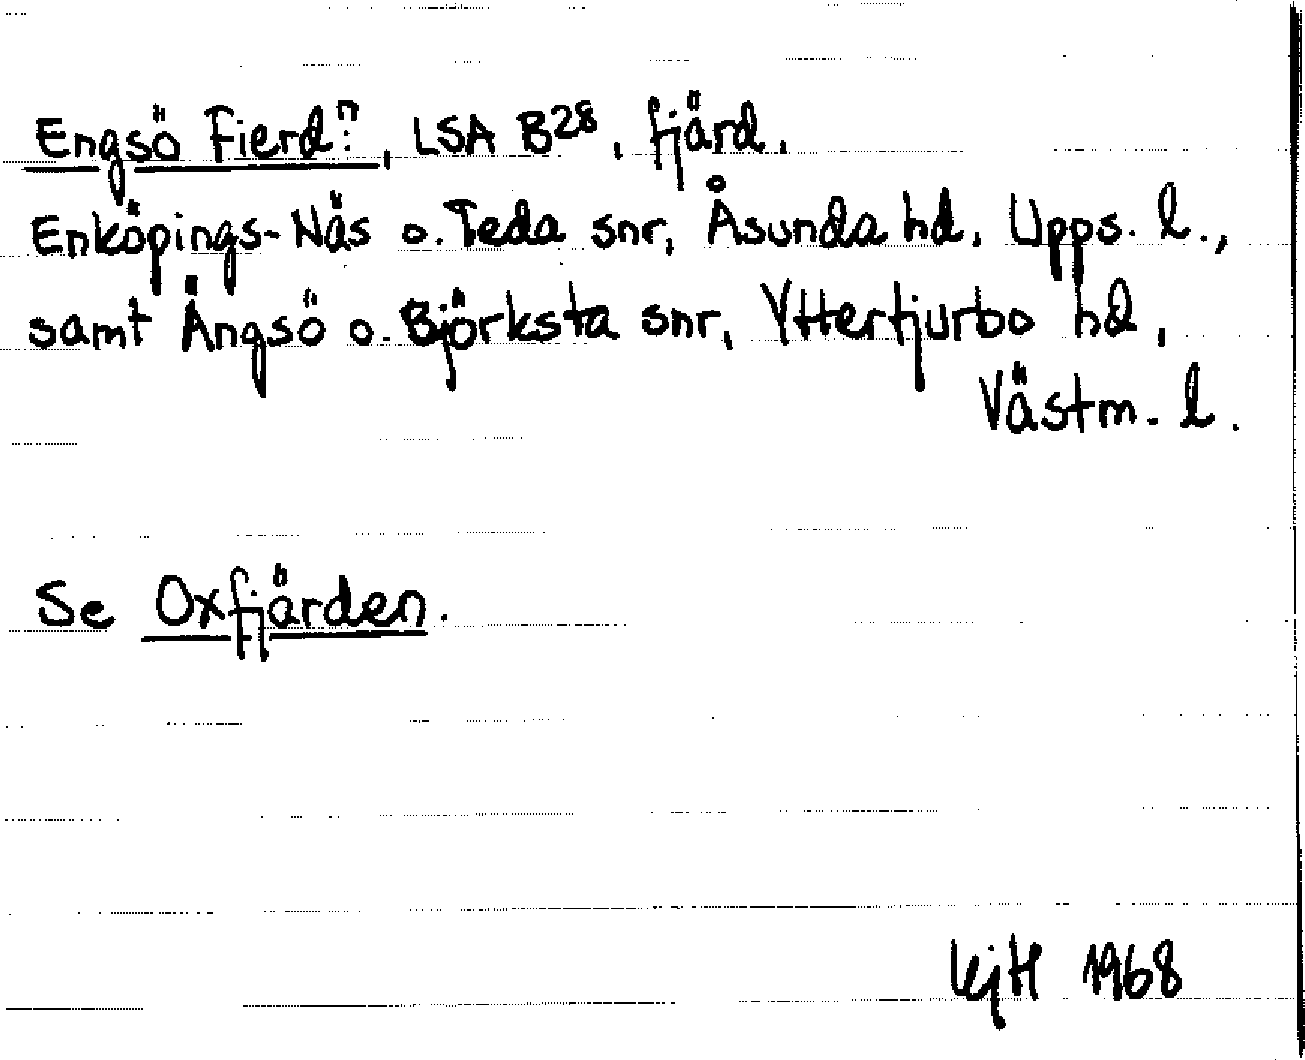 Engsö Fierdⁿ, LSA B²⁸, fjärd.
Enköpings-Näs o. Teda snr, Åsunda hd, Upps. l.,
samt Ängsö o. Björksta snr, Yttertjurbo hd,
Västm. l.
Se Oxfjärden.
1968